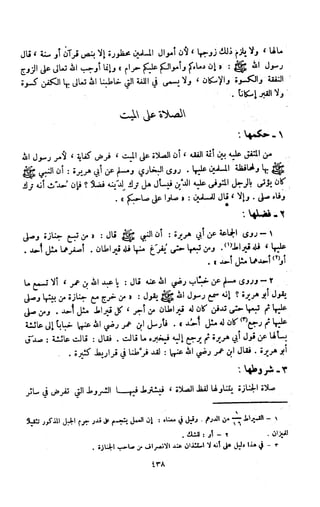 مالها ، ولا يلزم ذلك زوجها ، لأن أموال المسلمين محظورة إلا بنص قرآن أو سنة ، قال
رسول الله ﷺ : « إن دماءكم وأموالكم عليكم حرام » وإنما أوجب الله تعالى على الزوج
النفقة والكسوة والإسكان ، ولا يسمى في اللغة التي خاطبنا الله تعالى بها الكفن كسوة
ولا القبر إسكاناً .
الصلاة على الميت
١ - حكمها :
من المتفق عليه بين أئمة الفقه ، أن الصلاة على الميت ، فرض كفاية ، لأمر رسول الله
ﷺ بها ولمحافظة المسلمين عليها . روى البخاري ومسلم عن أبي هريرة : أن النبي ﷺ
كان يؤتى بالرجل المتوفى عليه الدين فيسأل هل ترك لدينه فضلا ؟ فإن حدث أنه ترك
وفاء صلى . وإلا ، قال للمسلمين : « صلوا على صاحبكم » .
٢ - فضلها :
١ - روى الجماعة عن أبي هريرة : أن النبي ﷺ قال : « من تبع جنازة وصلى
عليها ، فله قيراط (١) . ومن تبعها حتى يفرغ منها فله قيراطان . أصغرهما مثل أحد .
أو (٢) أحدهما مثل أحد » .
٢ - وروى مسلم عن خباب رضي الله عنه قال : يا عبد الله بن عمر ، ألا تسمع ما
يقول أبو هريرة ؟ إنه سمع رسول الله ﷺ يقول : « من خرج مع جنازة من بيتها وصلى
عليها ثم تبعها حتى تدفن كان له قيراطان من أجر ، كل قيراط مثل أحد . ومن صلى
عليها ثم رجع (٣) كان له مثل أحد » . فأرسل ابن عمر رضي الله عنهما خباباً إلى عائشة
يسألها عن قول أبي هريرة ثم يرجع إليه فيخبره ما قالت . فقال : قالت عائشة : صدق
أبو هريرة . فقال ابن عمر رضي الله عنهما : لقد فرطنا في قراريط كثيرة .
٣ - شروطها :
صلاة الجنازة يتناولها لفظ الصلاة ، فيشترط فيها الشروط التي تفرض في سائر
١ - القيراط ١/١٦ من الدرهم . وقيل في معناه : إن العمل يتجسم على قدر جرم الجبل المذكور تثقيلا
للميزان . ٢ - أو : للشك .
٣ - في هذا دليل على أنه لا استئذان عند الانصراف من صاحب الجنازة .
٤٣٨